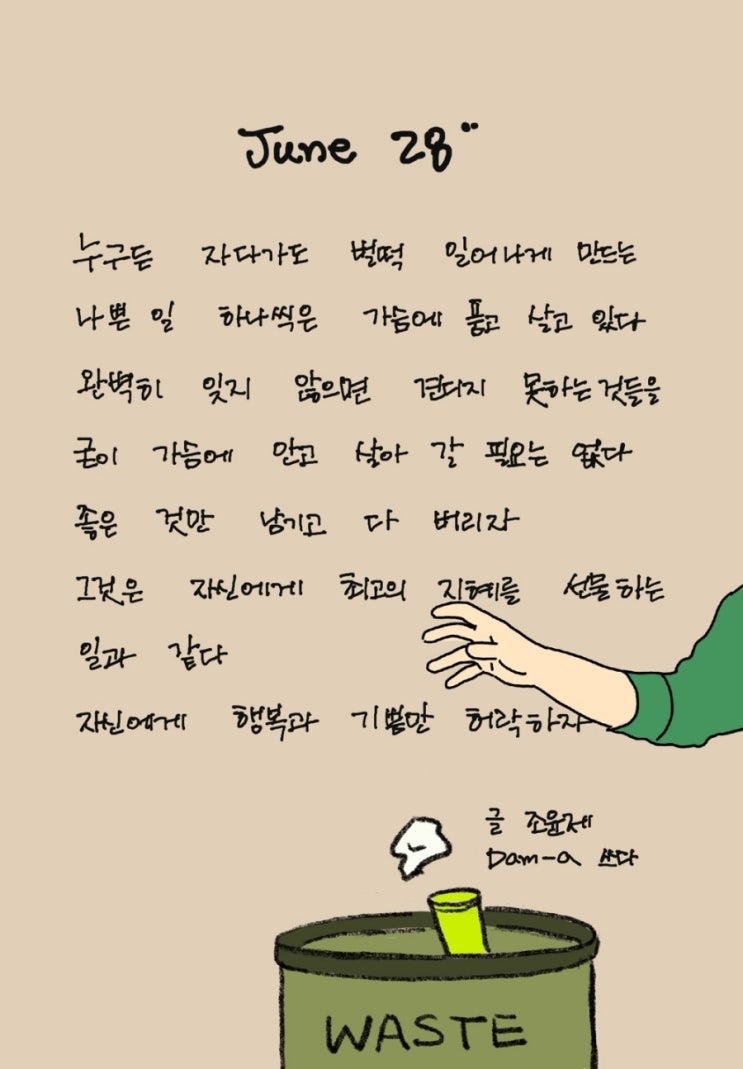 June 28
누구든 자다가도 벌떡 일어나게 만드는
나쁜 일 하나씩은 가슴에 품고 살고 있다
완벽히 잊지 않으면 견디지 못하는 것들을
굳이 가슴에 안고 살아 갈 필요는 없다
좋은 것만 남기고 다 버리자
그것은 자신에게 최고의 지혜를 선물하는
일과 같다
자신에게 행복과 기쁨만 허락하자
글 조윤제
Dam-a 쓰다
WASTE